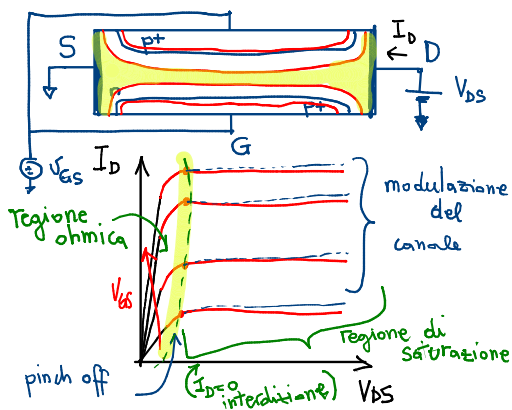 S
p+
I_D
D
n
p+
V_DS
G
V_GS
I_D
regione
ohmica
modulazione
del
canale
V_GS
regione di
saturazione
pinch off
(I_D=0
interdizione)
V_DS